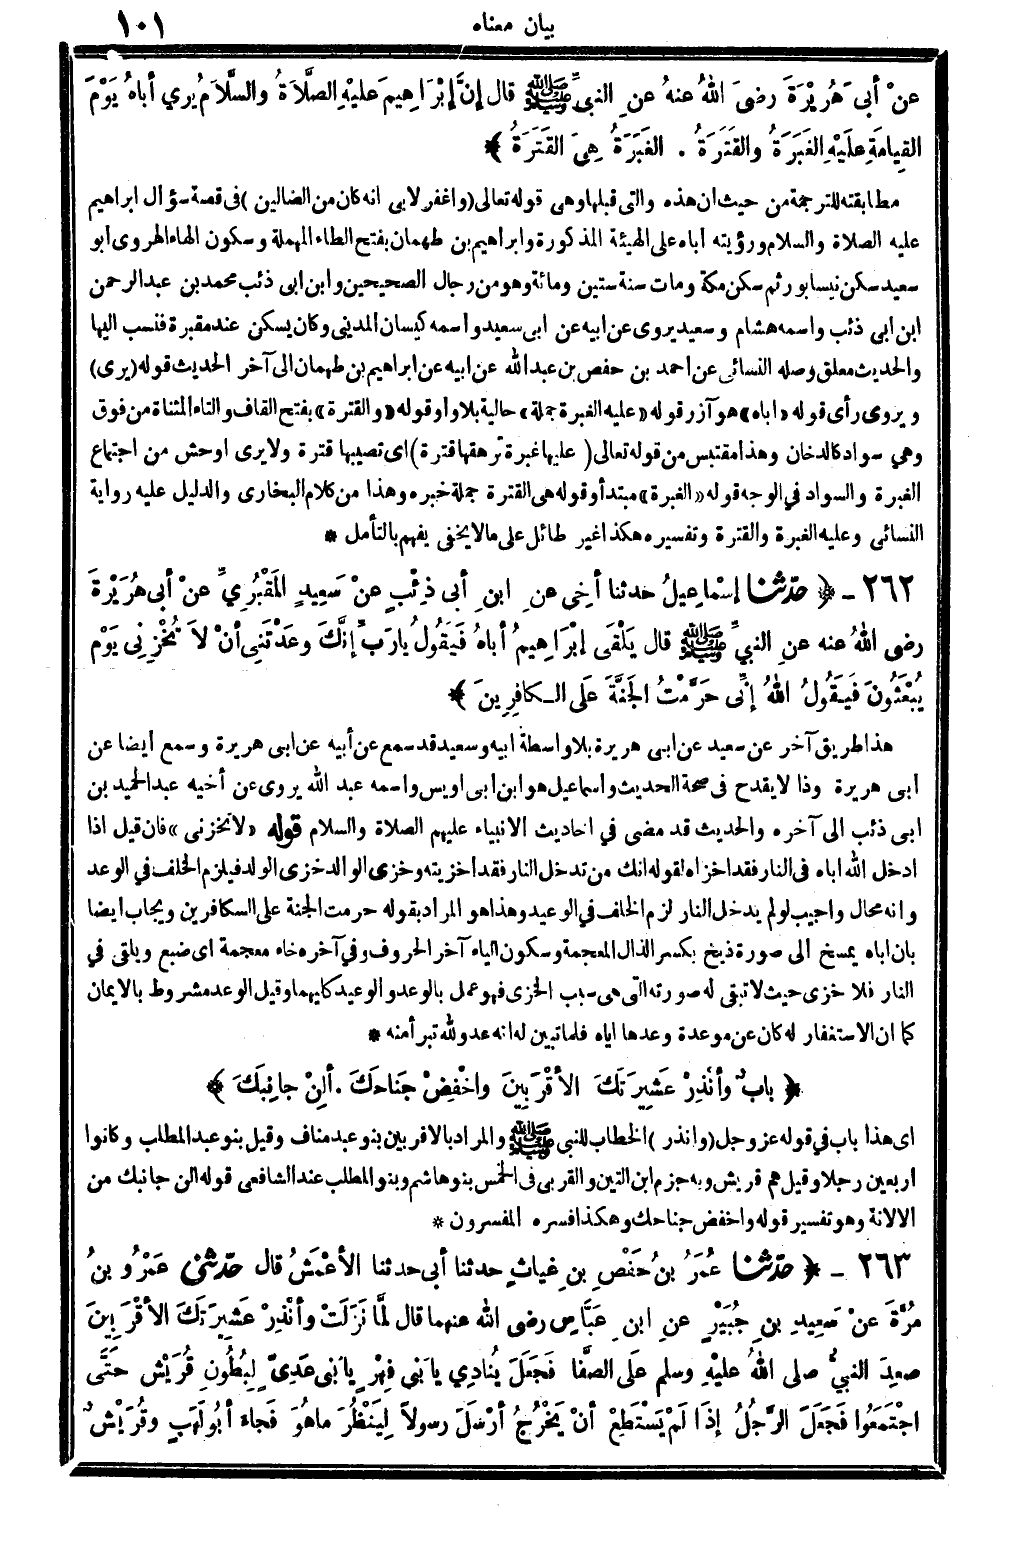 بيان معناه ١٠١
عنْ أبي هُرَيْرَةَ رضىَ اللهُ عنهُ عنِ النبيِّ ﷺ قال إنَّ إبْرَاهِيمَ عليْهِ الصَّلاَةُ والسَّلاَمُ يري أباهُ يَوْمَ
القِيامَةِ علَيْهِ الغَبَرَةُ والقَتَرَةُ . الغَبَرَةُ هِيَ القَتَرَةُ ﴾
مطابقته للترجمة من حيث ان هذه والتى قبلها وهى قوله تعالى (واغفر لابى انه كان من الضالين ) فى قصة سؤال ابراهيم
عليه الصلاة والسلام ورؤيته اباه على الهيئة المذكورة وابراهيم بن طهمان بفتح الطاء المهملة وسكون الهاء الهروى أبو
سعيد سكن نيسابور ثم سكن مكة ومات سنة ستين ومائة وهو من رجال الصحيحين وابن ابى ذئب محمد بن عبد الرحمن
ابن ابى ذئب واسمه هشام وسعيد يروى عن ابيه عن ابى سعيد واسمه كيسان المدنى وكان يسكن عند مقبرة فنسب اليها
والحديث معلق وصله النسائى عن احمد بن حفص بن عبد الله عن ابيه عن ابراهيم بن طهمان الى آخر الحديث قوله (يرى)
ويروى رأى قوله «اباه» هو آزر قوله «عليه الغبرة جملة» حالية بلا واو قوله «والقترة» بفتح القاف والتاء المثناة من فوق
وهي سواد كالدخان وهذا مقتبس من قوله تعالى ( عليها غبرة ترهقها قترة ) اى تصيبها قترة ولا يرى اوحش من اجتماع
الغبرة والسواد في الوجه قوله «الغبرة» مبتدأ وقوله هى القترة جملة خبره وهذا من كلام البخارى والدليل عليه رواية
النسائى وعليه الغبرة والقترة وتفسيره هكذا غير طائل على ما لا يخفى يفهم بالتأمل *
٢٦٢ - ﴿ حدّثنا إسْماعِيلُ حدثنا أخِى عنِ ابنِ أبى ذِئْبٍ عنْ سَعِيدٍ المَقْبُرِيِّ عنْ أبى هُرَيْرَةَ
رضى اللهُ عنه عنِ النبيِّ ﷺ قال يَلْقَى إبْرَاهِيمُ أباهُ فَيَقُولُ يارَبِّ إنَّكَ وعَدْتَنِى أنْ لاَ تُخْزِنِى يَوْمَ
يُبْعَثُونَ فَيَقُولُ اللهُ إنِّى حَرَّمْتُ الجَنَّةَ عَلَى الكافِرِينَ ﴾
هذا طريق آخر عن سعيد عن ابى هريرة بلا واسطة ابيه وسعيد قد سمع عن أبيه عن ابى هريرة وسمع ايضا عن
أبى هريرة وذا لا يقدح فى صحة الحديث واسماعيل هو ابن ابى اويس واسمه عبد الله يروى عن أخيه عبد الحميد بن
ابى ذئب الى آخره والحديث قد مضى في احاديث الانبياء عليهم الصلاة والسلام قوله «لا تخزنى» فان قيل اذا
ادخل الله اباه فى النار فقد اخزاه لقوله انك من تدخل النار فقد اخزيته وخزى الوالد خزى الولد فيلزم الخلف في الوعد
وانه محال واجيب لو لم يدخل النار لزم الخلف في الوعيد وهذا هو المراد بقوله حرمت الجنة على الكافرين ويجاب ايضا
بان اباه يمسخ الى صورة ذيخ بكسر الذال المعجمة وسكون الياء آخر الحروف وفي آخره خاء معجمة اى ضبع ويلقى في
النار فلا خزى حيث لا تبقى له صورته التى هى سبب الخزى فهو عمل بالوعد والوعيد كليهما وقيل الوعد مشروط بالايمان
كما ان الاستغفار له كان عن موعدة وعدها اياه فلما تبين له انه عدو لله تبرأ منه *
﴿ بابٌ وأنْذِرْ عَشِيرَتَكَ الأقْرَبِينَ واخْفِضْ جَناحَكَ . ألِنْ جانِبَكَ ﴾
اى هذا باب في قوله عز وجل (وانذر ) الخطاب للنبى ﷺ والمراد بالاقربين بنو عبد مناف وقيل بنو عبد المطلب وكانوا
اربعين رجلا وقيل هم قريش وبه جزم ابن التين والقربى فى الخمس بنو هاشم وبنو المطلب عند الشافعى قوله الن جانبك من
الالانة وهو تفسير قوله واخفض جناحك وهكذا فسره المفسرون *
٢٦٣ - ﴿ حدّثنا عُمَرُ بنُ حَفْصِ بنِ غِياثٍ حدثنا أبى حدثنا الأعْمَشُ قال حدّثنى عَمْرُو بنُ
مُرَّةَ عنْ سَعِيدِ بنِ جُبَيْرٍ عنِ ابنِ عَبَّاسٍ رضى الله عنهما قال لَمَّا نَزَلَتْ وأنْذِرْ عَشِيرَتَكَ الأقْرَبِينَ
صعِدَ النبىُّ صلى اللهُ عليْهِ وسلم عَلَى الصَّفَا فَجَعَلَ يُنادِي يا بَنِي فِهْرٍ يا بَنِى عَدِىٍّ لِبُطُونِ قُرَيْشٍ حَتَّى
اجْتَمَعُوا فَجَعَلَ الرَّجُلُ إذَا لَمْ يَسْتَطِعْ أنْ يَخْرُجَ أرْسَلَ رسولاً لِيَنْظُرَ ماهُوَ فَجاءَ أبُو لَهَبٍ وقُرَيْشٌ